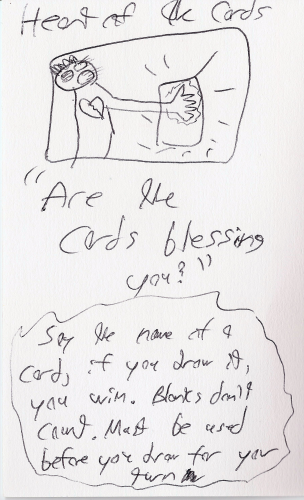 Heart of the Cards
"Are the
Cards blessing
you?"
Say the name of a
Card, if you draw it,
you win. Blanks don't
Count. Must be used
before you draw for your
turn